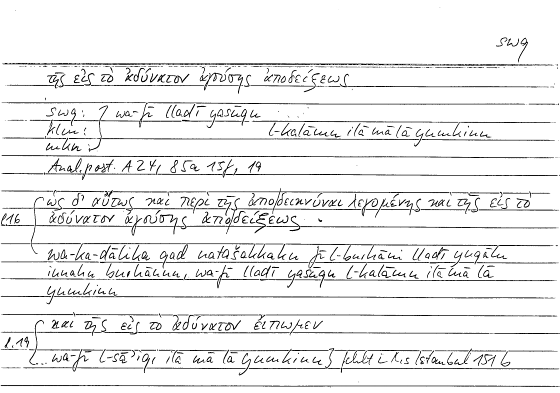 swq
τῆς εἰς τὸ ἀδύνατον ἀγούσης ἀποδείξεως
swq: } wa-fī lladī yasūqu
klm: l-kalāmu ilā mā lā yumkinu
mkn:
Anal. post. A 24, 85a 15f, 19
ὡς δ' αὔτως καὶ περὶ τῆς ἀποδεικνύναι λεγομένης καὶ τῆς εἰς τὸ
l.16 ἀδύνατον ἀγούσης ἀποδείξεως .
wa-ka-dālika qad natašakkaku fī l-burhāni lladī yuqālu
innahu burhānun, wa-fī lladī yasūqu l-kalāma ilā mā lā
yumkinu
καὶ τῆς εἰς τὸ ἀδύνατον εἴπωμεν
l.19 wa-fī l-sā'iqi ilā mā lā yumkinu} fehlt i. Istanbul 151b